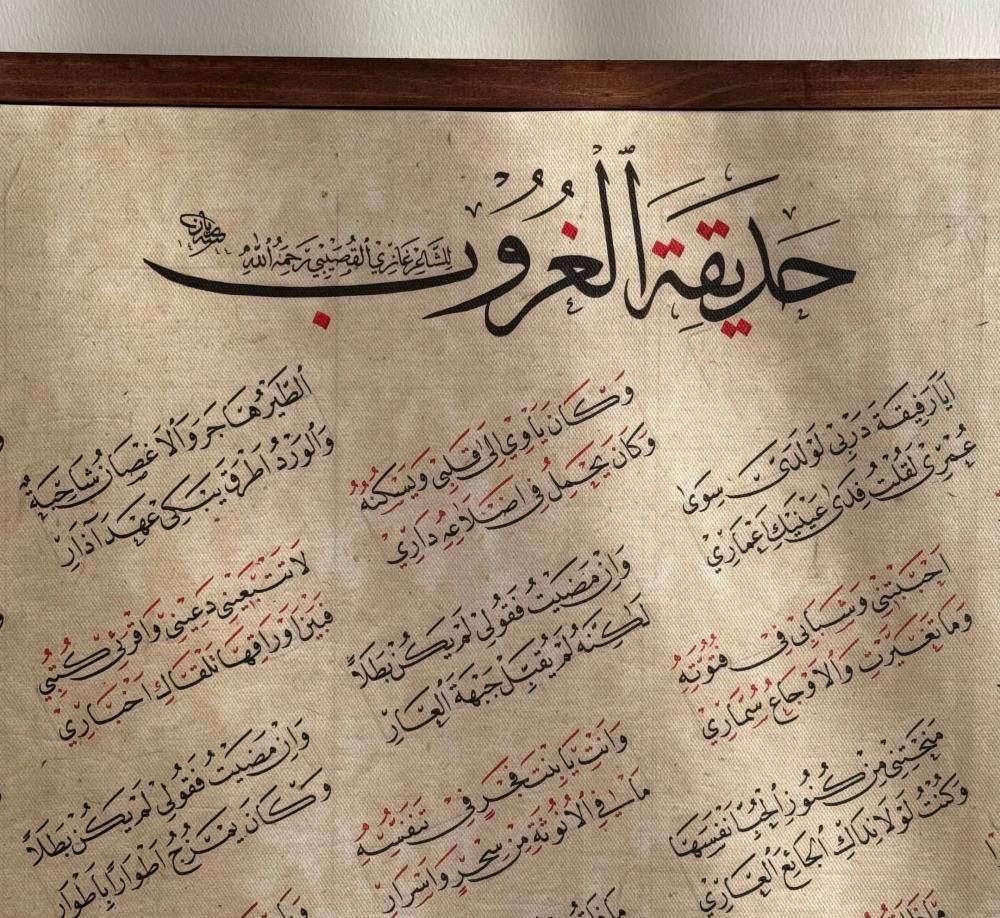 حديقة الغروب
للشاعر غازي القصيبي رحمه الله
ايا رفيقة دربي لو لدي سوى
عمري لقلت فدى عينيك اعماري
احببتني وشبابي في فتوته
وما تغيرت والاوجاع سماري
منحتني من كنوز الحب انفسها
وكنت لولا نداك الجائع العاري
وكان ياوي الى قلبي ويسكنه
وكان يحمل في اضلاعه داري
وان مضيت فقولي لم يكن بطلاً
لكنه لم يقبل جبهة العار
وانت يا بنت فجر في تنفسه
ما في الانوثة من سحر واسرار
الطير هاجر والاغصان شاحبة
والورد اطرق يبكي عهد آذار
لا تتبعيني دعيني واقرئي كتبي
فبين اوراقها تلقاك اخباري
وان مضيت فقولي لم يكن بطلاً
وكان يمزج اطواراً باطوار